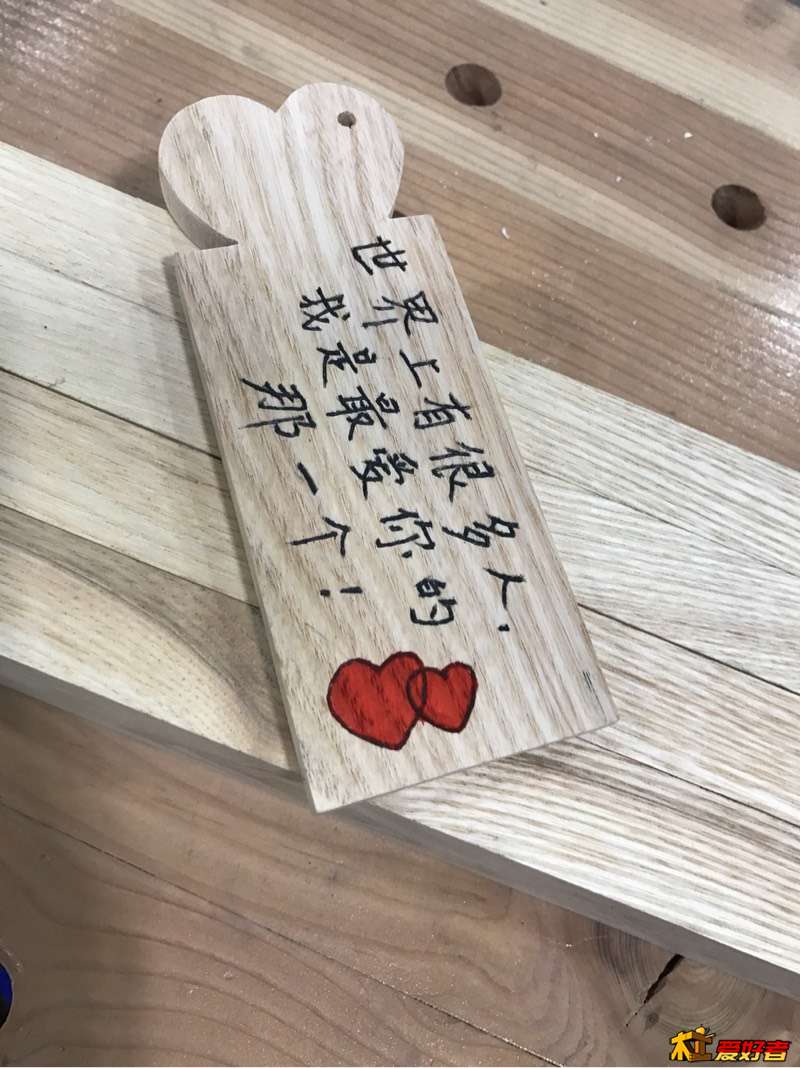 世界上有很多人.
我是最爱你的
那一个!
木工爱好者